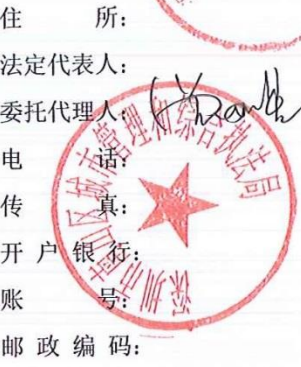 住 所:
法定代表人:
委托代理人:
电 话:
传 真:
开户银行:
账 号:
邮政编码:
深圳市南山区城市管理和综合执法局